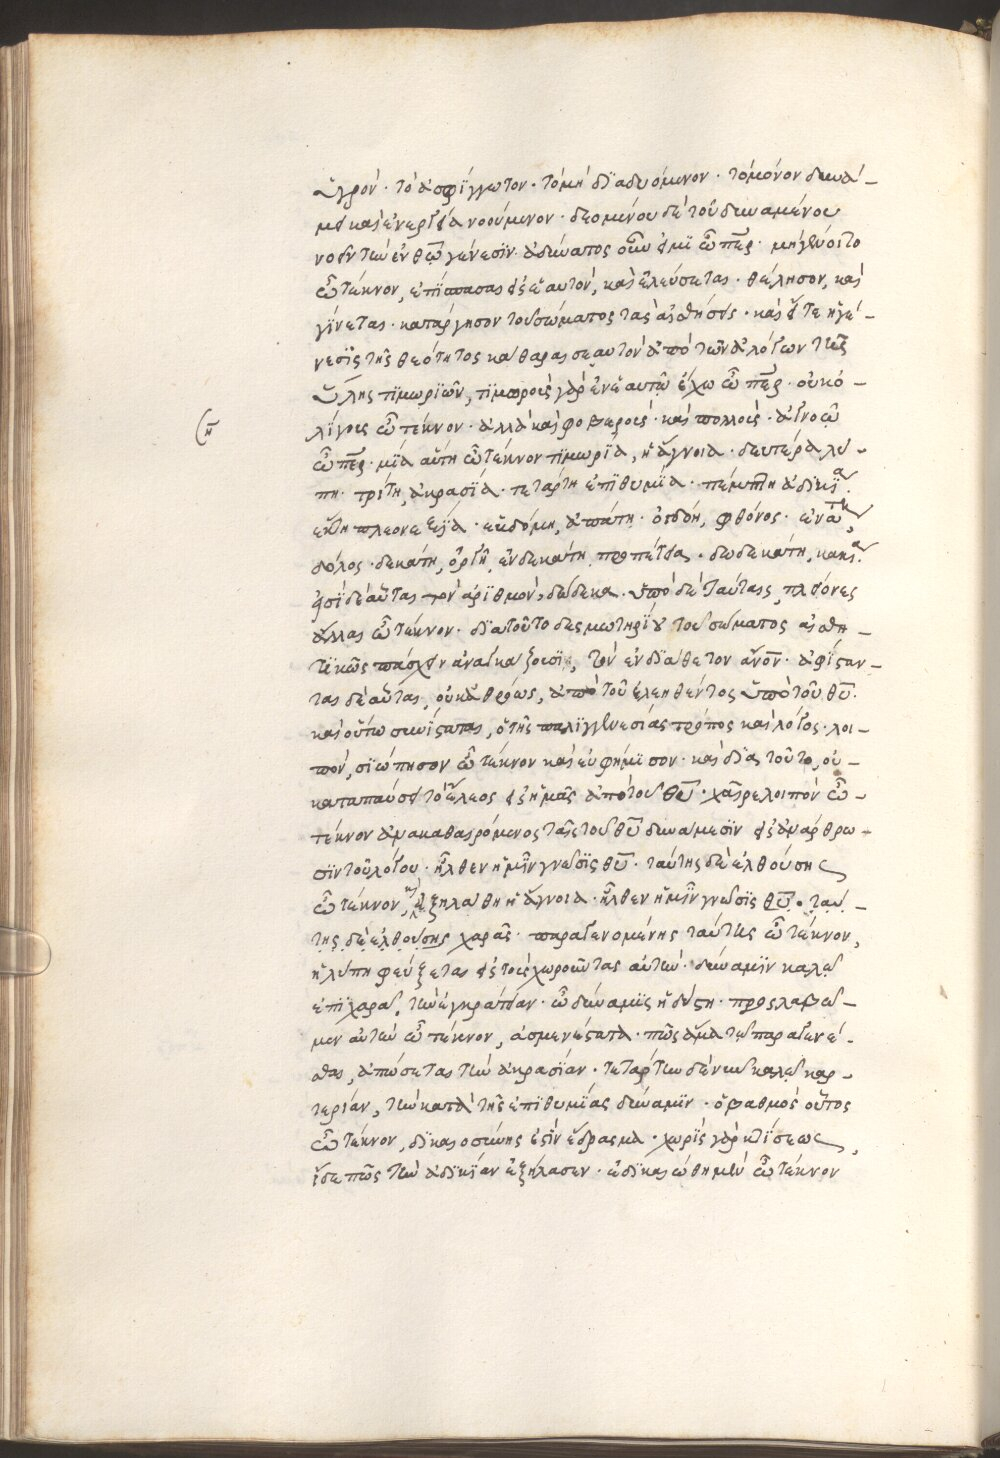 ὑγρόν· τὸ ἀσφίγγωτον· τὸ μὴ δϊαδυόμενον· τὸ μόνον δυνά-
μει καὶ ἐνεργείᾳ νοούμενον· δεομένου δὲ τοῦ δυναμένου
νοεῖν τὴν ἐν θεῷ γένεσϊν· ἀδύνατος οὖν εἰμϊ ὦ περ· μὴ γένοιτο
ὦ τέκνον, ἐπίσπασαι εἰς ἑαυτόν, καὶ ἐλεύσεται· θέλησον, καὶ
γίνεται· κατάργησον τοῦ σώματος τὰς αἰσθήσεις· καὶ εἶτε ἡ γέ-
νεσϊς τῆς θεότητος καθᾶραι σεαυτὸν ἀπὸ τῶν ἀλόγων τῆς
ὕλης τϊμωρϊῶν, τϊμωροὺς γὰρ ἐν ἐμαυτῷ ἔχω ὦ περ· οὐκ ὀ-
λίγους ὦ τέκνον· ἀλλὰ καὶ φοβεροὺς· καὶ πολλοὺς· ἀγνοῶ
ὦ περ· μϊα αὕτη ὦ τέκνον τϊμωρϊα, ἡ ἄγνοια· δευτέρα λύ-
πη· τρίτη, ἀκρασϊα· τετάρτη ἐπϊθυμϊα· πέμπτη ἀδικϊα·
ἕκτη πλεονεξϊα· ἑβδόμη, ἀπάτη· ὀγδόη, φθόνος· ἐνάτη,
δόλος· δεκάτη, ὀργή, ἑνδεκάτη, προπέτεια· δωδεκάτη, κακϊα·
εἰσϊ δὲ αὗται τὸν ἀρϊθμὸν, δώδεκα· ὑπὸ δὲ ταύτας, πλείονες
ἄλλαι ὦ τέκνον· δϊα τοῦτο δεσμωτηρϊου τοῦ σώματος αἰσθη-
τϊκῶς πάσχειν ἀναγκάζουσϊ, τὸν ἐνδϊάθετον ἀνον· ἀφίσταν-
ται δὲ αὗται, οὐκ ἀθρόως, ἀπὸ τοῦ ἐλεηθέντος ὑπὸ τοῦ θυ.
καὶ οὕτω συνίσταται, ὁ τῆς παλϊγγενεσίας τρόπος καὶ λόγος· λοι-
πὸν, σϊώπησον ὦ τέκνον καὶ εὐφήμϊσον· καὶ δϊα τοῦτο, οὐ-
καταπαύσει τὸ ἔλεος εἰς ἡμᾶς ἀπὸ τοῦ θυ· χαῖρε λοιπὸν ὦ-
τέκνον ἀνακαθαιρόμενος ταῖς τοῦ θυ δυναμεσϊν εἰς ἀνάρθρω-
σϊν τοῦ λόγου· ἦλθεν ἡμῖν γνῶσϊς θυ· ταύτης δὲ ἐλθούσης
ὦ τέκνον, ἐξηλάθη ἡ ἄγνοια· ἦλθεν ἡμῖν γνῶσϊς θυ· ταύ-
της δὲ ἐλθούσης χαρᾶς· παραγενομένης ταύτης ὦ τέκνον,
ἡ λύπη φεύξεται εἰς τοὺς χωροῦντας αὐτὴν· δύναμϊν καλῶ
ἐπϊ χαρᾷ, τὴν ἐγκράτειαν· ὦ δύναμϊς ἡδίστη· προσλάβω-
μεν αὐτὴν ὦ τέκνον, ἀσμενέστατα· πῶς ἅμα τῷ παραγενέ-
σθαι, ἀπώσεται τὴν ἀκρασίαν· τετάρτην δὲ νῦν καλῶ καρ-
τερίαν, τὴν κατὰ τῆς ἐπϊθυμίας δύναμϊν· ὁ βαθμὸς οὗτος
ὦ τέκνον, δϊκαιοσύνης ἐστϊν ἕδρασμα· χωρὶς γὰρ κτίσεως,
ἴδε πῶς τὴν ἀδϊκϊαν ἐξήλασεν· ἐδϊκαιώθημεν ὦ τέκνον